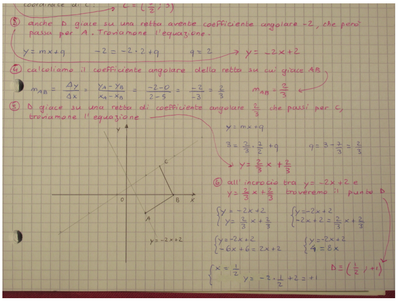 coordinate di C
C = ( 7/2 ; 3)
③ anche D giace su una retta avente coefficiente angolare -2, che però
passa per A. Troviamone l'equazione.
y = mx + q   -2 = -2·2 + q   q = 2   y = -2x + 2
④ calcoliamo il coefficiente angolare della retta su cui giace AB
m AB = Δy/Δx = yA - yB / xA - xB = -2-0 / 2-5 = -2/-3 = 2/3   m AB = 2/3
⑤ D giace su una retta di coefficiente angolare 2/3 che passi per C,
troviamone l'equazione
y = mx + q
y = 2/3 x + 2/3
⑥ all'incrocio tra y = -2x + 2 e
y = 2/3 x + 2/3 troveremo il punto D
{ y = -2x + 2   { y = -2x + 2
y = 2/3 x + 2/3   -2x + 2 = 2/3 x + 2/3
{ y = -2x + 2   { y = -2x + 2
-6x + 6 = 2x + 2   4 = 8x
{ x = 1/2   D = ( 1/2 ; +1)
Y
C
O
A
B
X
y = -2x + 2